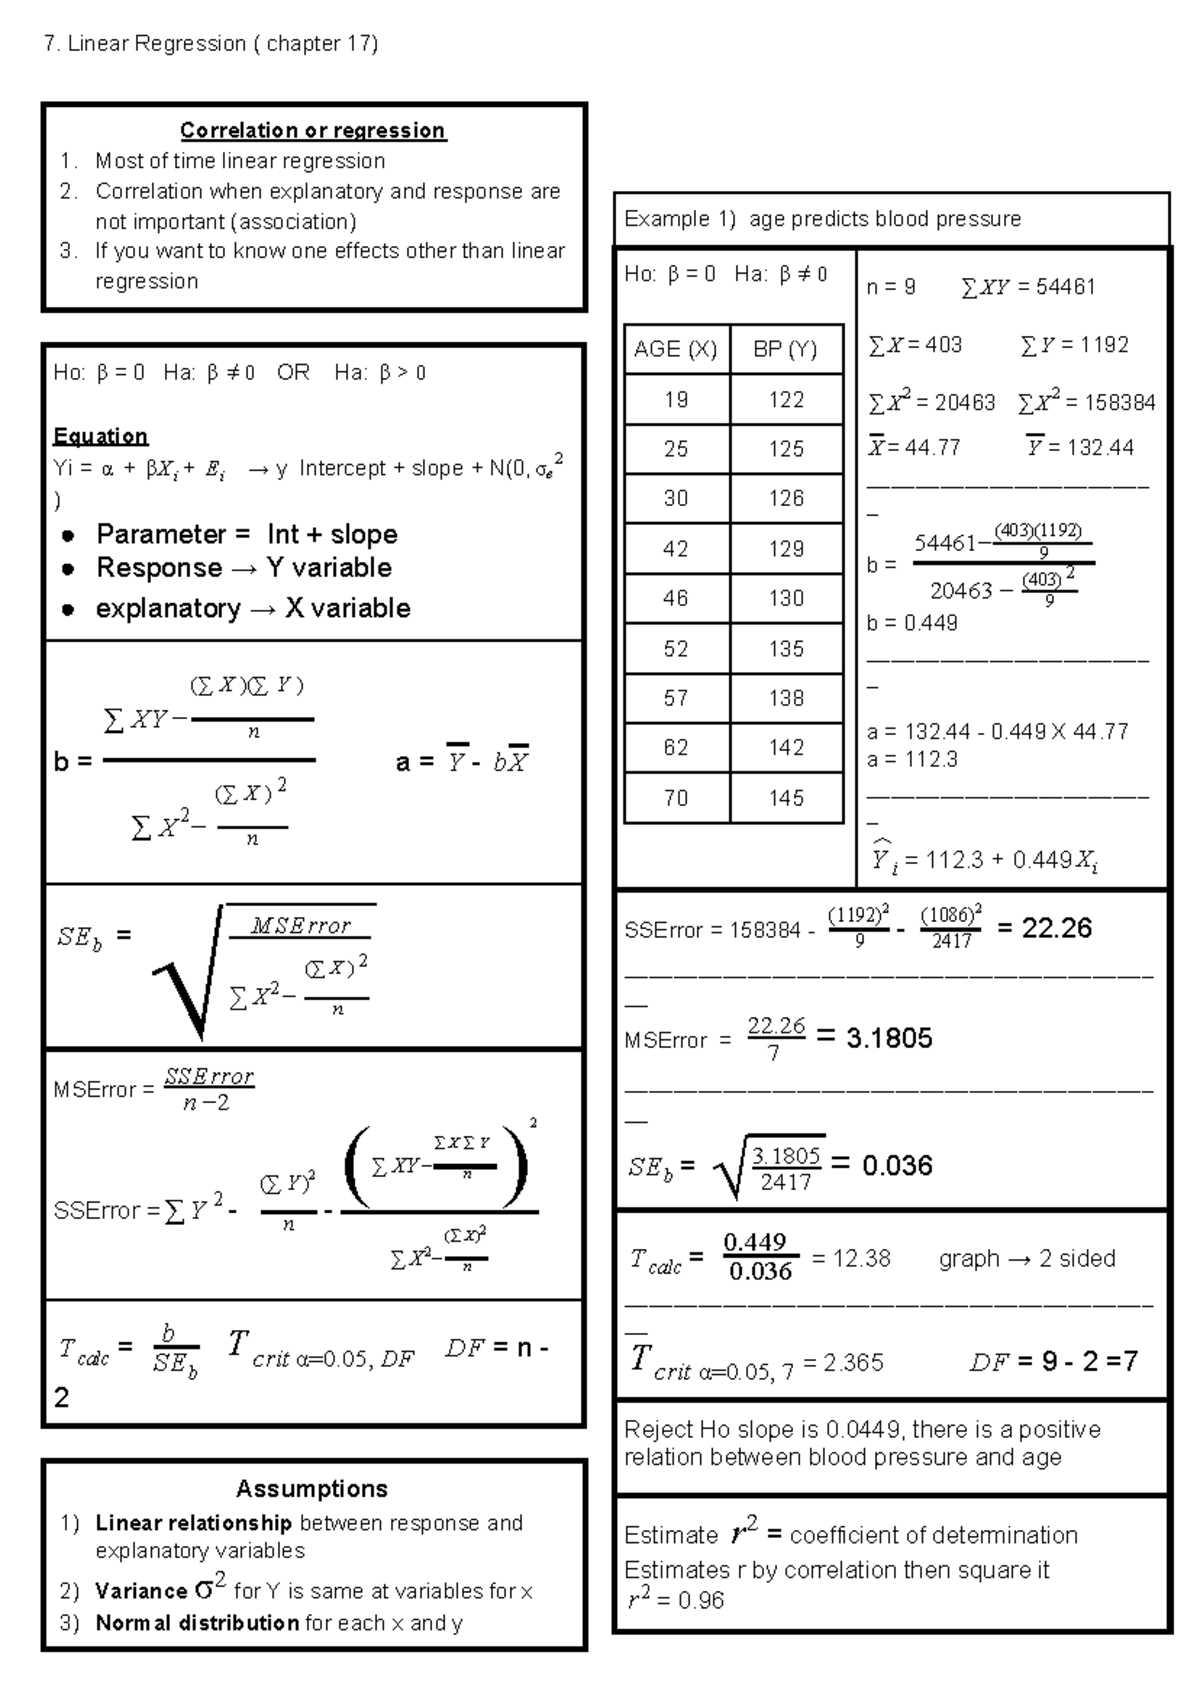 7. Linear Regression ( chapter 17)
Correlation or regression
1. Most of time linear regression
2. Correlation when explanatory and response are
not important (association)
3. If you want to know one effects other than linear
regression
Ho: β = 0 Ha: β ≠ 0 OR Ha: β > 0
Equation
Yi = α + βXi + Ei → y Intercept + slope + N(0, σe²
)
● Parameter = Int + slope
● Response → Y variable
● explanatory → X variable
(∑ X)(∑ Y)
∑ XY − n
b = a = Y̅ - bX̅
(∑ X)²
∑ X² − n
SEb = √ MSError
(∑ X)²
∑ X² − n
MSError = SSError
n −2
SSError = ∑ Y² - (∑ Y)²/n - (∑ XY − ∑X∑Y/n)² / ∑ X² − (∑ X)²/n
Tcalc = b/SEb Tcrit α=0.05, DF DF = n -
2
Assumptions
1) Linear relationship between response and
explanatory variables
2) Variance σ² for Y is same at variables for x
3) Normal distribution for each x and y
Example 1) age predicts blood pressure
Ho: β = 0 Ha: β ≠ 0
AGE (X) BP (Y)
19 122
25 125
30 126
42 129
46 130
52 135
57 138
62 142
70 145
n = 9 ∑XY = 54461
∑X = 403 ∑Y = 1192
∑X² = 20463 ∑X² = 158384
X̅ = 44.77 Y̅ = 132.44
b = 54461 − (403)(1192)/9
20463 − (403)²/9
b = 0.449
a = 132.44 - 0.449 X 44.77
a = 112.3
Ŷi = 112.3 + 0.449Xi
SSError = 158384 - (1192)²/9 - (1086)²/2417 = 22.26
MSError = 22.26/7 = 3.1805
SEb = √ 3.1805/2417 = 0.036
Tcalc = 0.449/0.036 = 12.38 graph → 2 sided
Tcrit α=0.05, 7 = 2.365 DF = 9 - 2 =7
Reject Ho slope is 0.0449, there is a positive
relation between blood pressure and age
Estimate r² = coefficient of determination
Estimates r by correlation then square it
r² = 0.96